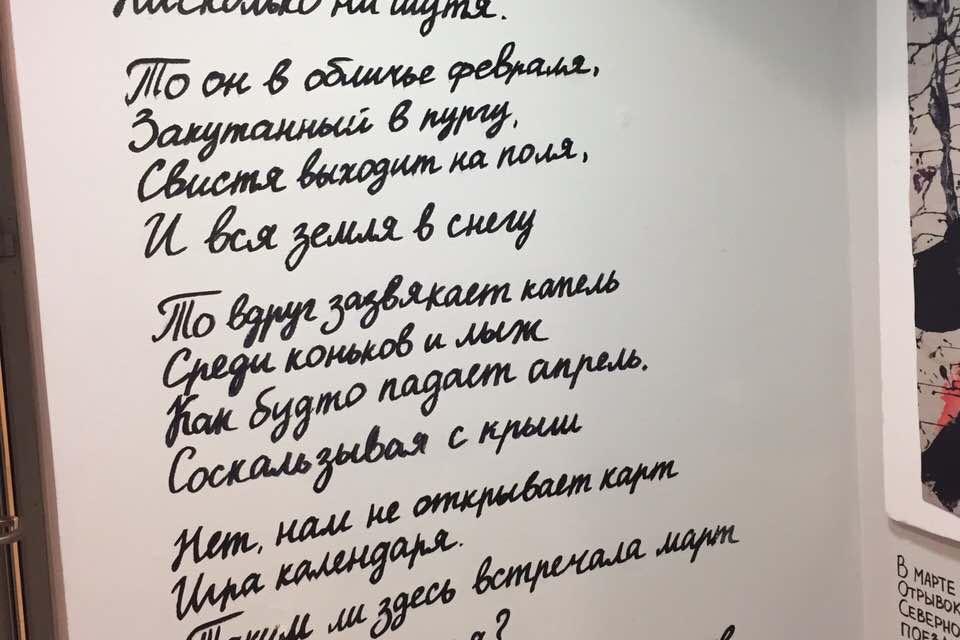 Насколько ни шутя.
То он в обличье февраля,
Закутанный в пургу,
Свистя выходит на поля,
И вся земля в снегу
То вдруг зазвякает капель
Среди коньков и лыж
Как будто падает апрель.
Соскальзывая с крыш
Нет, нам не открывает карт
Игра календаря.
Таким ли здесь встречала март
?
В марте
Отрывок
Северно